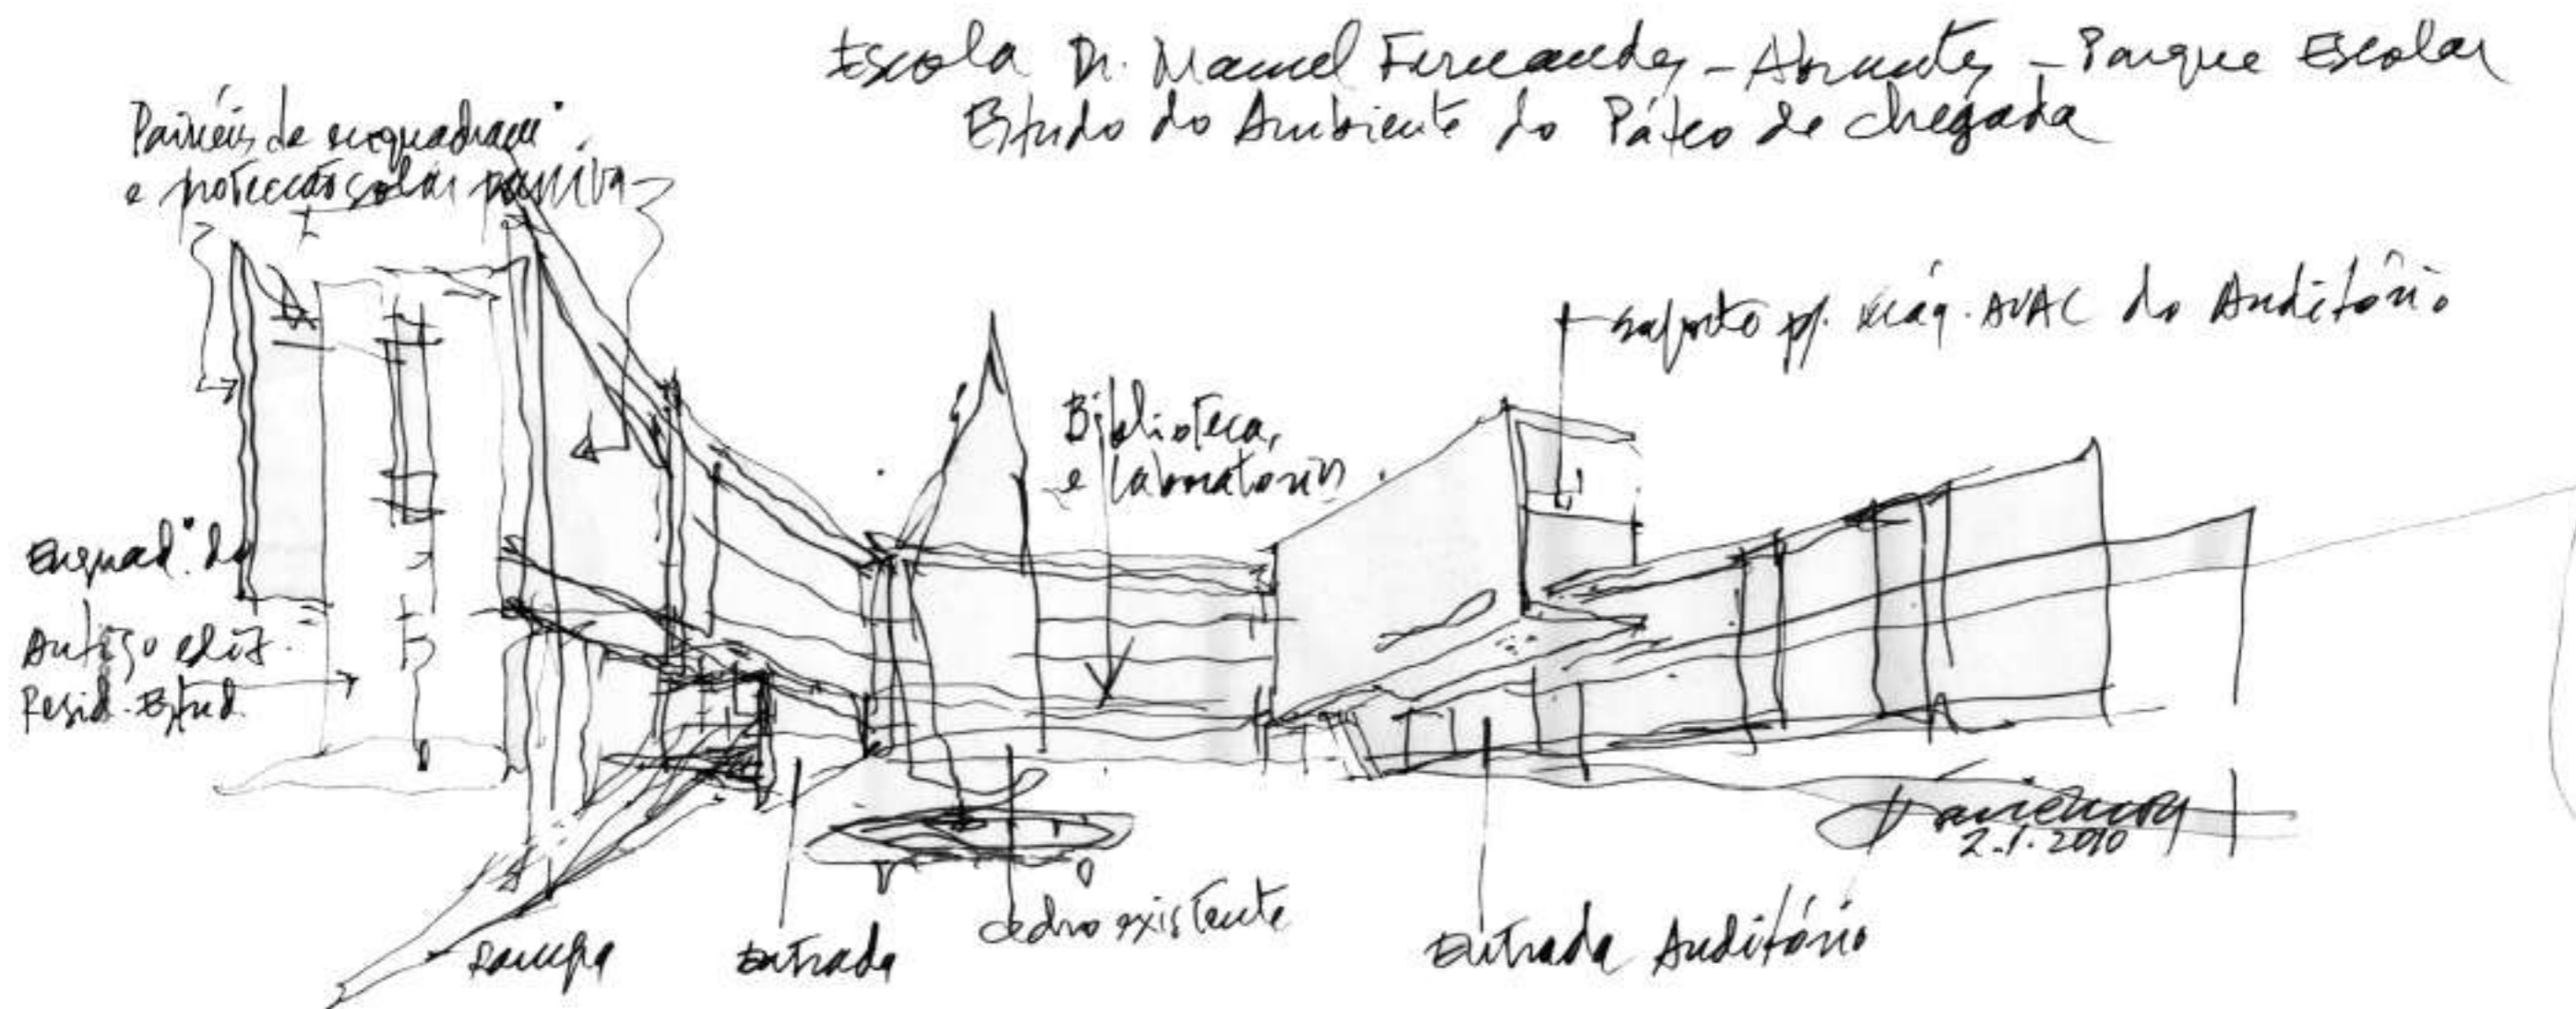 Escola Dr. Manuel Fernandes - Abrantes - Parque Escolar
Estudo do Ambiente do Páteo de chegada
Painéis de enquadram.to
e protecção solar passiva
suporte p/. máq. AVAC do Auditório
Biblioteca,
e laboratorios
Enquad.to do
Antigo edif.
Resid. Estud.
2.1.2010
cedro existente
Rampa
Entrada
Entrada Auditório